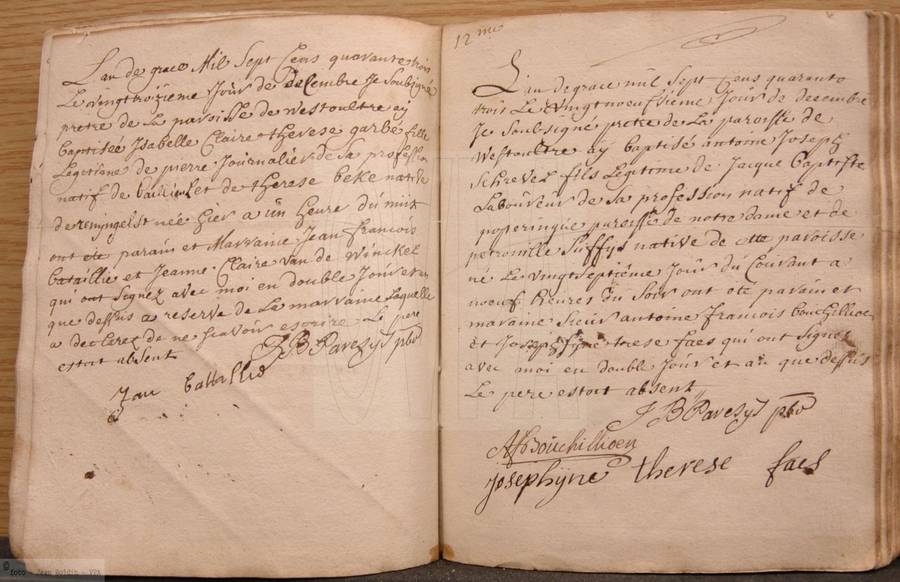 L'an de grace Mil Sept Cens quarantetrois
Le vingttroizieme Jour de decembre Je Soubsigné
pretre de La paroisse de westoultre ay
baptisée Isabelle Claire therese garbe fille
Legitime de pierre Journalier de Sa profession
natif de bailieul et de therese beke native
de reningelst née hier a un heure du nuit
ont ete parain et Marraine Jean francois
bataillie et Jeanne Claire van de winckel
qui ont Signez avec moi en double Jour et an
que dessus a reserve de La marraine Laquelle
a declerez de ne scavoir escrire Le pere
estoit absent
J B Paresys pbr
Jan battallie
12me
L'an de grace mil Sept Cens quarante
trois Le vingtnoeufvieme Jour de desembre
Je Soubsigné pretre de La paroisse de
westoultre ay baptisé antoine Joseph
Schrevel fils Legitime de Jacque baptiste
Laboureur de Sa profession natif de
poperingue paroisse de notre dame et de
petronille Suffys native de cette paroisse
né Le vingtseptiême Jour du Courant a
noeuf heures du Soir ont été parain et
maraine Sieur antoine francois bouchillioen
et Josephyne therese faes qui ont Signez
avec moi en double Jour et an que dessus
Le pere estoit absent
J B Paresys pbr
AfBouchillioen
Josephyne therese faes
© foto - Jean Boldin - VVF